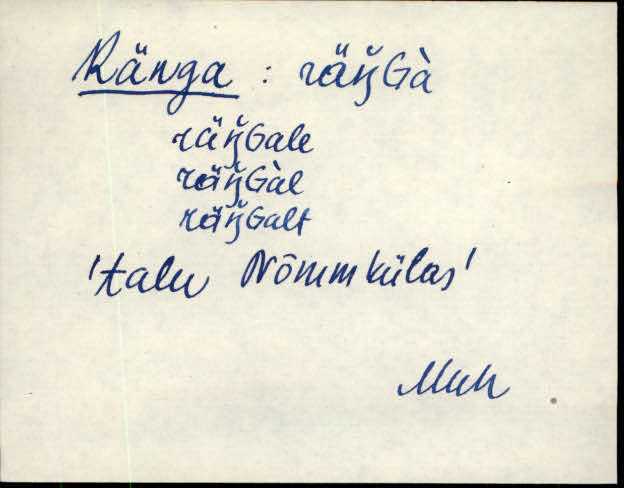 Ränga : räŋ̆Gà
räŋ̆Gale
räŋ̆Gàl
räŋ̆Galt
'talu Nõmmkülas'
Muh